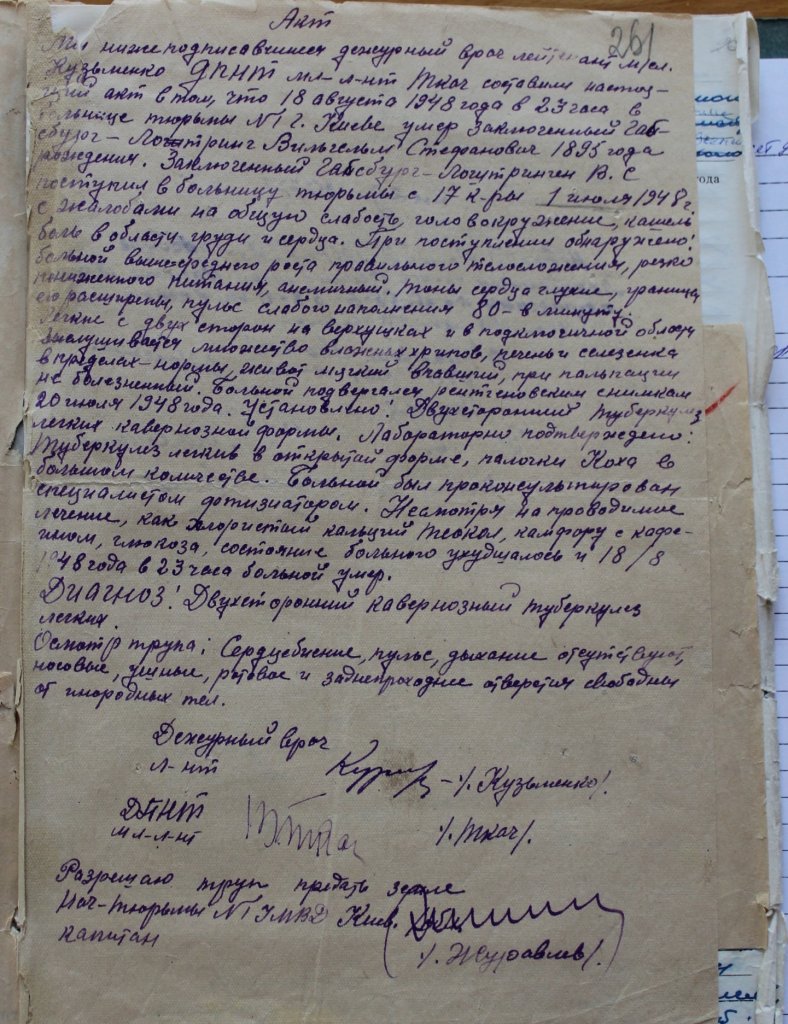 Акт
261
Мы нижеподписавшиеся дежурный врач лейтенант м/сл.
Кузьменко ДПНТ мл-л-нт Ткач составили настоя-
щий акт в том, что 18 августа 1948 года в 23 часа в
больнице тюрьмы №1 г. Киеве умер заключенный Габ-
сбург-Лоштринг Вильгельм Стефанович 1895 года
рождения. Заключенный Габсбург-Лоштринген В. С
поступил в больницу тюрьмы с 17 к-ры 1 июля 1948 г.
с жалобами на общую слабость, головокружение, кашель
боль в области груди и сердца. При поступлении обнаружено:
больной выше-среднего роста правильного телосложения, резко
пониженного питания, анемичный. Тоны сердца глухие, границы
его расширены, пульс слабого наполнения 80-в минуту.
Легкие с двух сторон на верхушках и в подключичной области
выслушивается множество влажных хрипов, печень и селезенка
в пределах-нормы, живот мягкий впавший, при пальпации
не болезненный. Больной подвергался рентгеновским снимкам
20 июля 1948 года. Установлено: Двухсторонний туберкулез
легких кавернозной формы. Лабораторно подтверждено:
Туберкулез легкив в открытой форме, палочки Коха в
большом количестве. Больной был проконсультирован
специалистом фтизиатором. Несмотря на проводимое
лечение, как хлористый кальций тиокол, камфору с кофе-
ином, глюкоза, состояние больного ухудшалось и 18/8
1948 года в 23 часа больной умер.
Диагноз: Двухсторонний кавернозный туберкулез
легких.
Осмотр трупа: Сердцебиение, пульс, дыхание отсутствуют,
носовые, ушные, ротовое и заднепроходние отверстия свободны
от инородных тел.
Дежурный врач
л-нт
/. Кузьменко/.
ДПНТ
мл-л-нт
Ткач
/. Ткач/.
Разрешаю труп предать земле
Нач-тюрьмы №1 УМВД Киев.
капитан
/. Журавлев/.
года